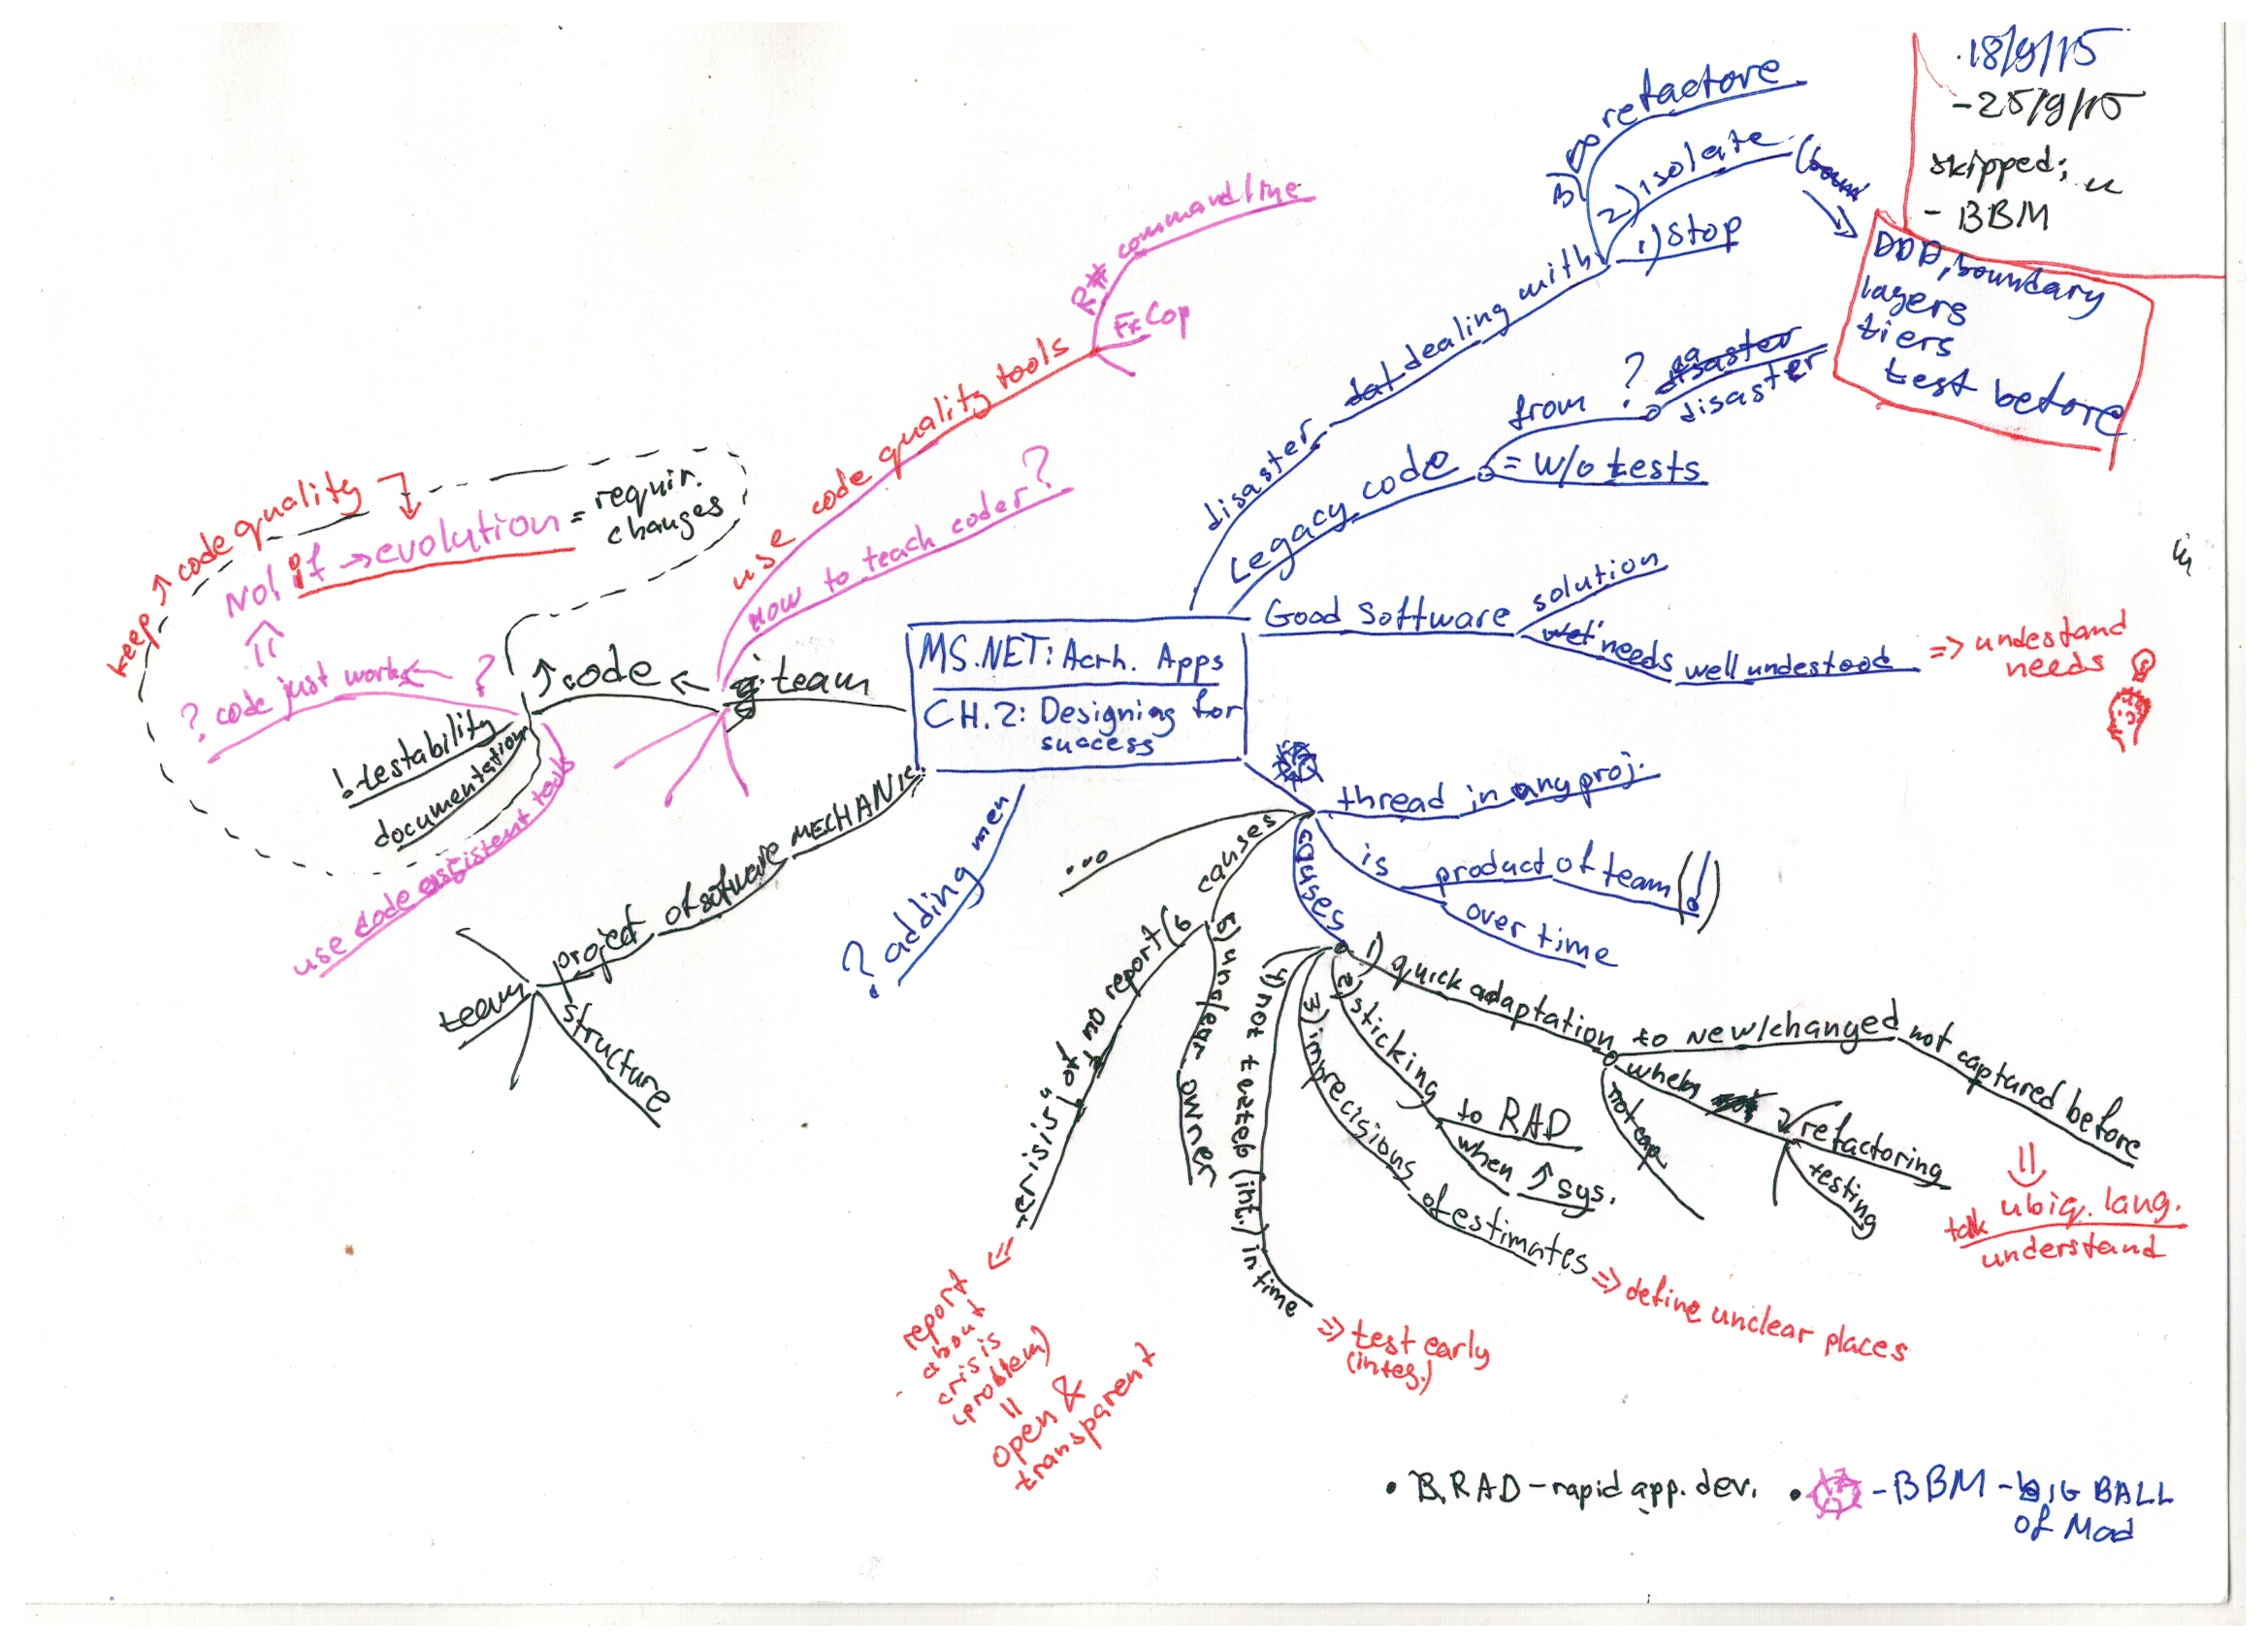 18/9/15
- 25/9/15
skipped;
- BBM
MS.NET: Acrh. Apps
CH.2: Designing for
success
disaster
dealing with
1) Stop
2) isolate
3)
refactore
DDD, boundary
layers
tiers
test before
Legacy code
from ?
disaster
disaster
= w/o tests
Good Software
solution
needs
well undestood
=> undestand
needs
thread in any proj.
is
product of team (!)
over time
causes
1) quick adaptation
to new/changed
not captured before
ubiq. lang.
talk
understand
when
refactoring
testing
not cap
2) sticking
to RAD
when ↑ sys.
3) imprecisions
of estimates
=> define unclear places
4) not tested (int.) in time
=> test early
(integ.)
causes
5) unclear owner
6) no report
of
"crisis"
=> report
about
crisis
(problem)
=
open &
transparent
...
? adding men
MECHANIC
of software
project
team
structure
team
↑code
use code quality tools
R# commandline
FxCop
how to teach coder?
?
? code just works
=>
NO! if → evolution = requir.
changes
keep ↑ code quality
! testability
documentation
use code assistent tools
• B, RAD - rapid app. dev.
• - BBM - BIG BALL
of Mad